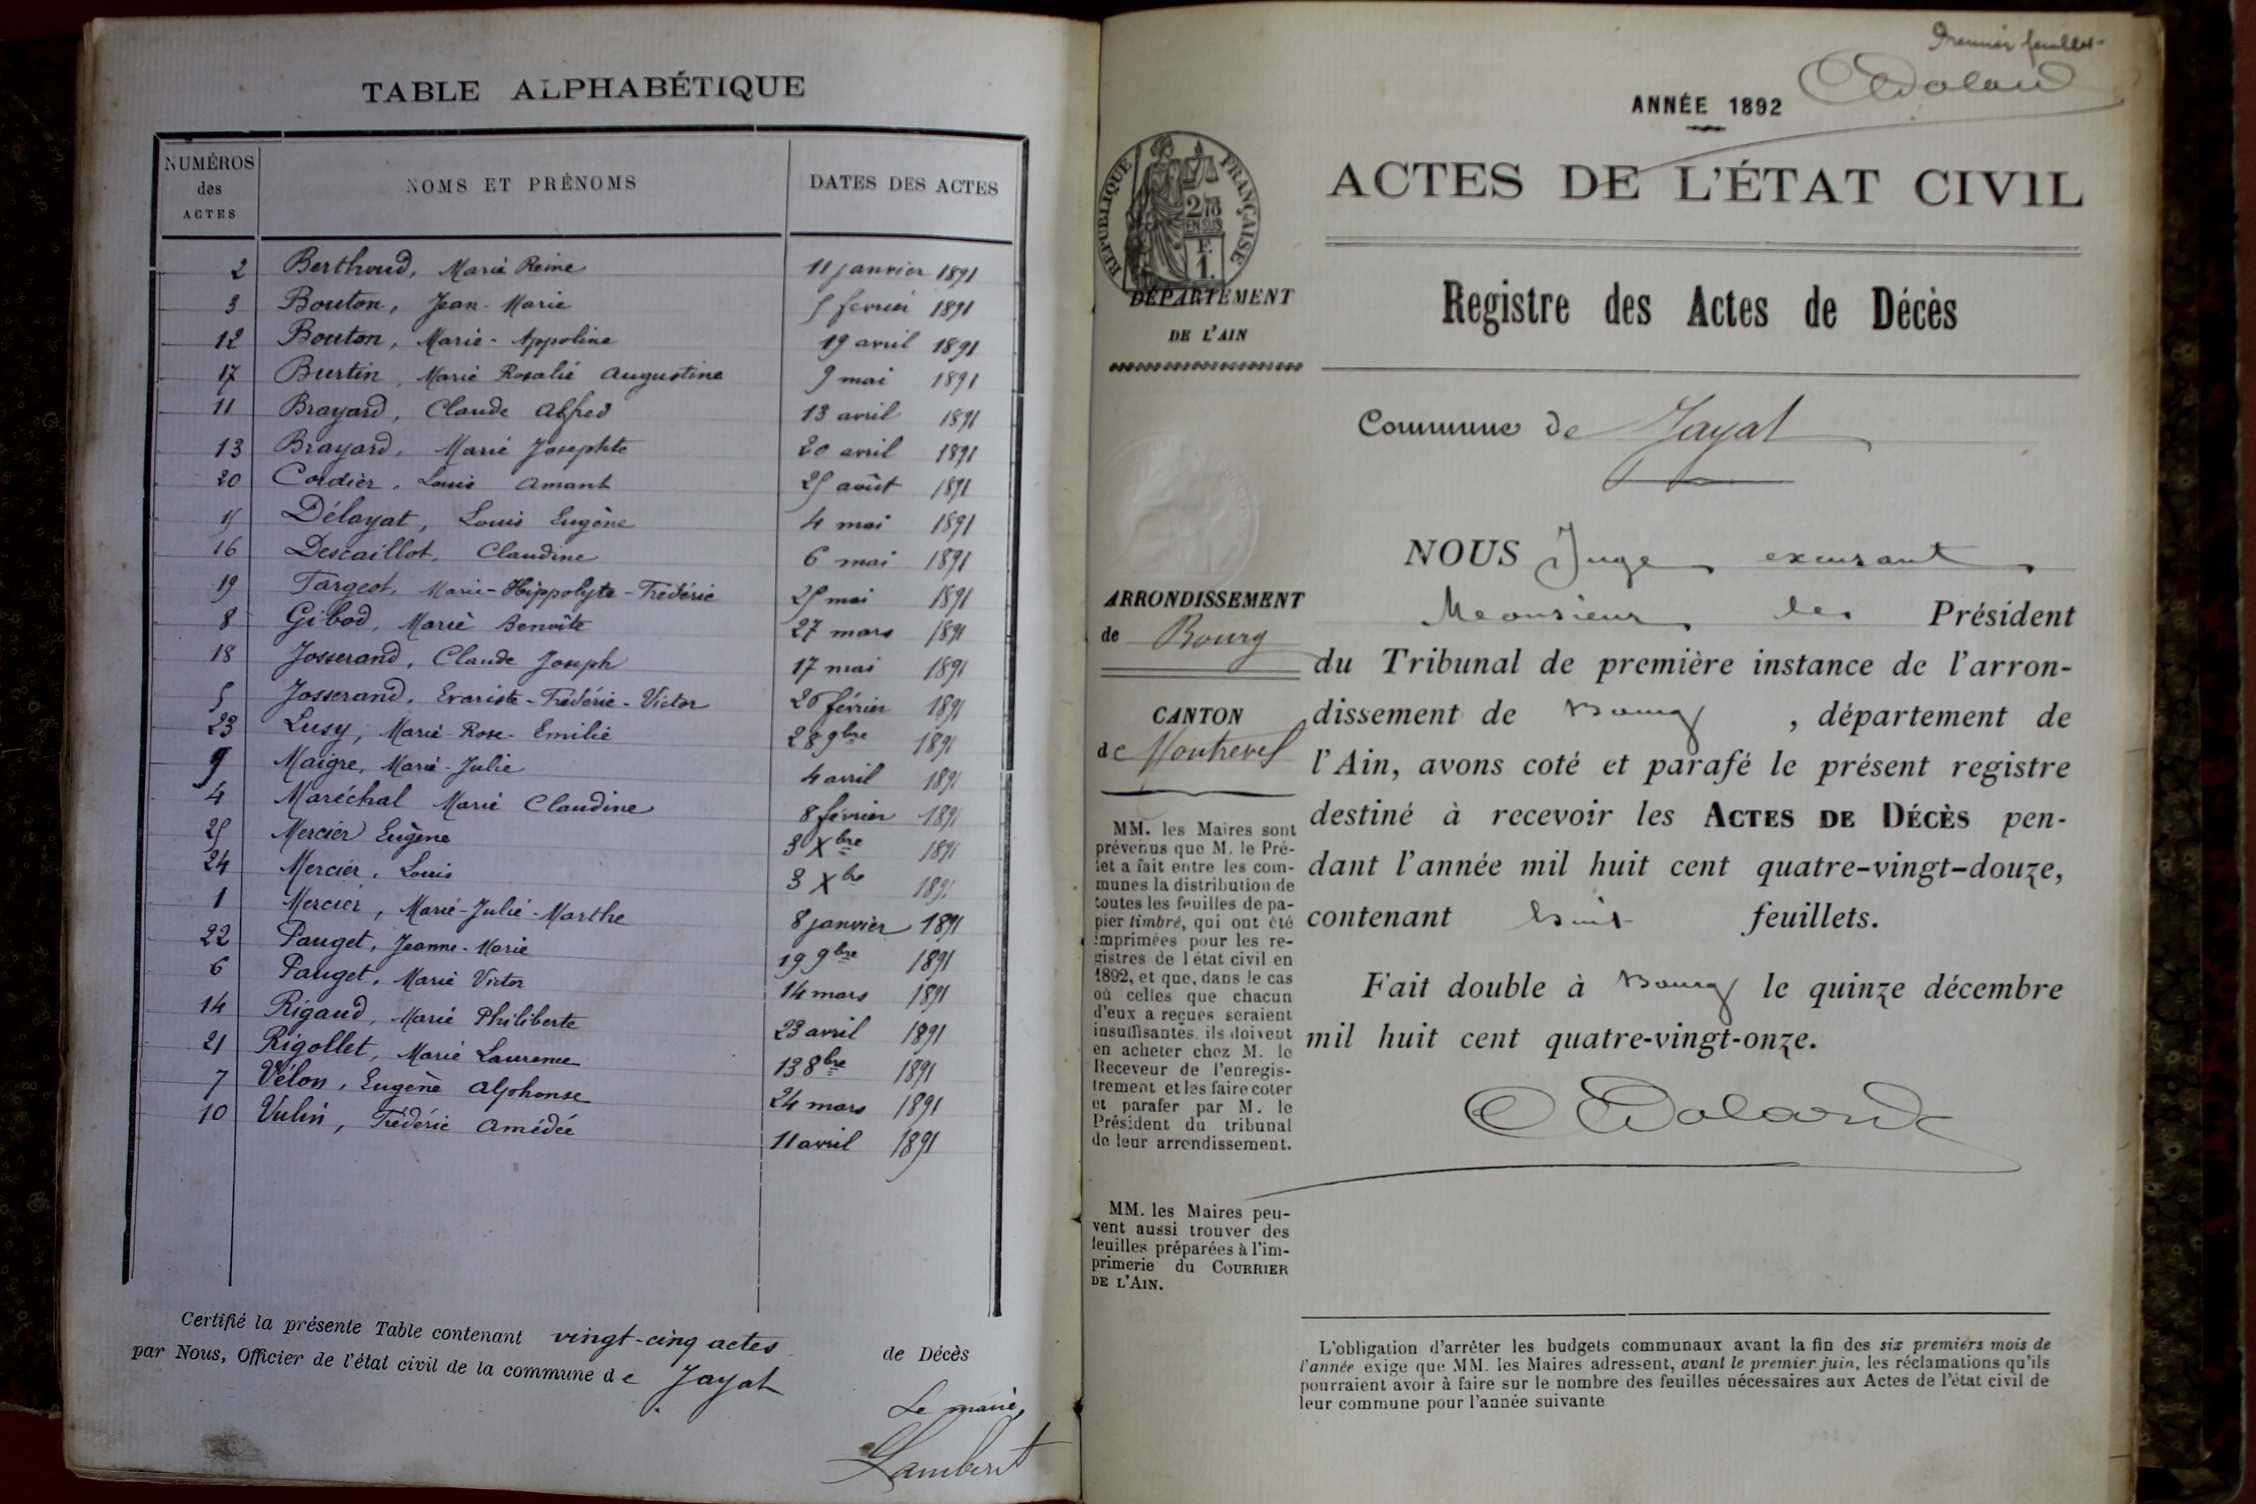 TABLE ALPHABÉTIQUE
NUMÉROS des ACTES NOMS ET PRÉNOMS DATES DES ACTES
2 Berthoud, Marie Reine 11 janvier 1891
3 Bouton, Jean-Marie 5 fevrier 1891
12 Bouton, Marie-Appoline 19 avril 1891
17 Burtin, Marie Rosalie Augustine 9 mai 1891
11 Brayard, Claude Alfred 13 avril 1891
13 Brayard, Marie Josephte 20 avril 1891
20 Cordier, Louis Amant 25 août 1891
15 Délayat, Louis Eugène 4 mai 1891
16 Descaillot, Claudine 6 mai 1891
19 Fargeot, Marie-Hippolyte-Frédéric 25 mai 1891
8 Gibod, Marie Benoîte 27 mars 1891
18 Josserand, Claude Joseph 17 mai 1891
5 Josserand, Evariste-Frédéric-Victor 26 février 1891
23 Lusy, Marie-Rose-Emilie 28 9bre 1891
9 Maigre, Marie-Julie 4 avril 1891
4 Maréchal Marie Claudine 8 février 1891
25 Mercier Eugène 3 Xbre 1891
24 Mercier, Louis 3 Xbre 1891
1 Mercier, Marie-Julie-Marthe 8 janvier 1891
22 Pauget, Jeanne-Marie 19 9bre 1891
6 Pauget, Marie Victor 14 mars 1891
14 Rigaud, Marie Philiberte 23 avril 1891
21 Rigollet, Marie Laurence 13 8bre 1891
7 Vélon, Eugène Alphonse 24 mars 1891
10 Vulin, Frédéric Amédée 11 avril 1891
Certifié la présente Table contenant vingt-cinq actes de Décès
par Nous, Officier de l'état civil de la commune de Jayat
Le maire,
Lambert
Premier feuillet
ANNÉE 1892
ACTES DE L'ÉTAT CIVIL
RÉPUBLIQUE FRANÇAISE
2/10 EN SUS
F. 1.
DÉPARTEMENT
DE L'AIN
Registre des Actes de Décès
Commune de Jayat
ARRONDISSEMENT
de Bourg
CANTON
de Montrevel
MM. les Maires sont
prévenus que M. le Pré-
fet a fait entre les com-
munes la distribution de
toutes les feuilles de pa-
pier timbré, qui ont été
imprimées pour les re-
gistres de l'état civil en
1892, et que, dans le cas
où celles que chacun
d'eux a reçues seraient
insuffisantes, ils doivent
en acheter chez M. le
Receveur de l'enregis-
trement et les faire coter
et parafer par M. le
Président du tribunal
de leur arrondissement.
MM. les Maires peu-
vent aussi trouver des
feuilles préparées à l'im-
primerie du COURRIER
DE L'AIN.
NOUS Juge excusant
Monsieur le Président
du Tribunal de première instance de l'arron-
dissement de Bourg, département de
l'Ain, avons coté et parafé le présent registre
destiné à recevoir les ACTES DE DÉCÈS pen-
dant l'année mil huit cent quatre-vingt-douze,
contenant huit feuillets.
Fait double à Bourg le quinze décembre
mil huit cent quatre-vingt-onze.
L'obligation d'arrêter les budgets communaux avant la fin des six premiers mois de
l'année exige que MM. les Maires adressent, avant le premier juin, les réclamations qu'ils
pourraient avoir à faire sur le nombre des feuilles nécessaires aux Actes de l'état civil de
leur commune pour l'année suivante